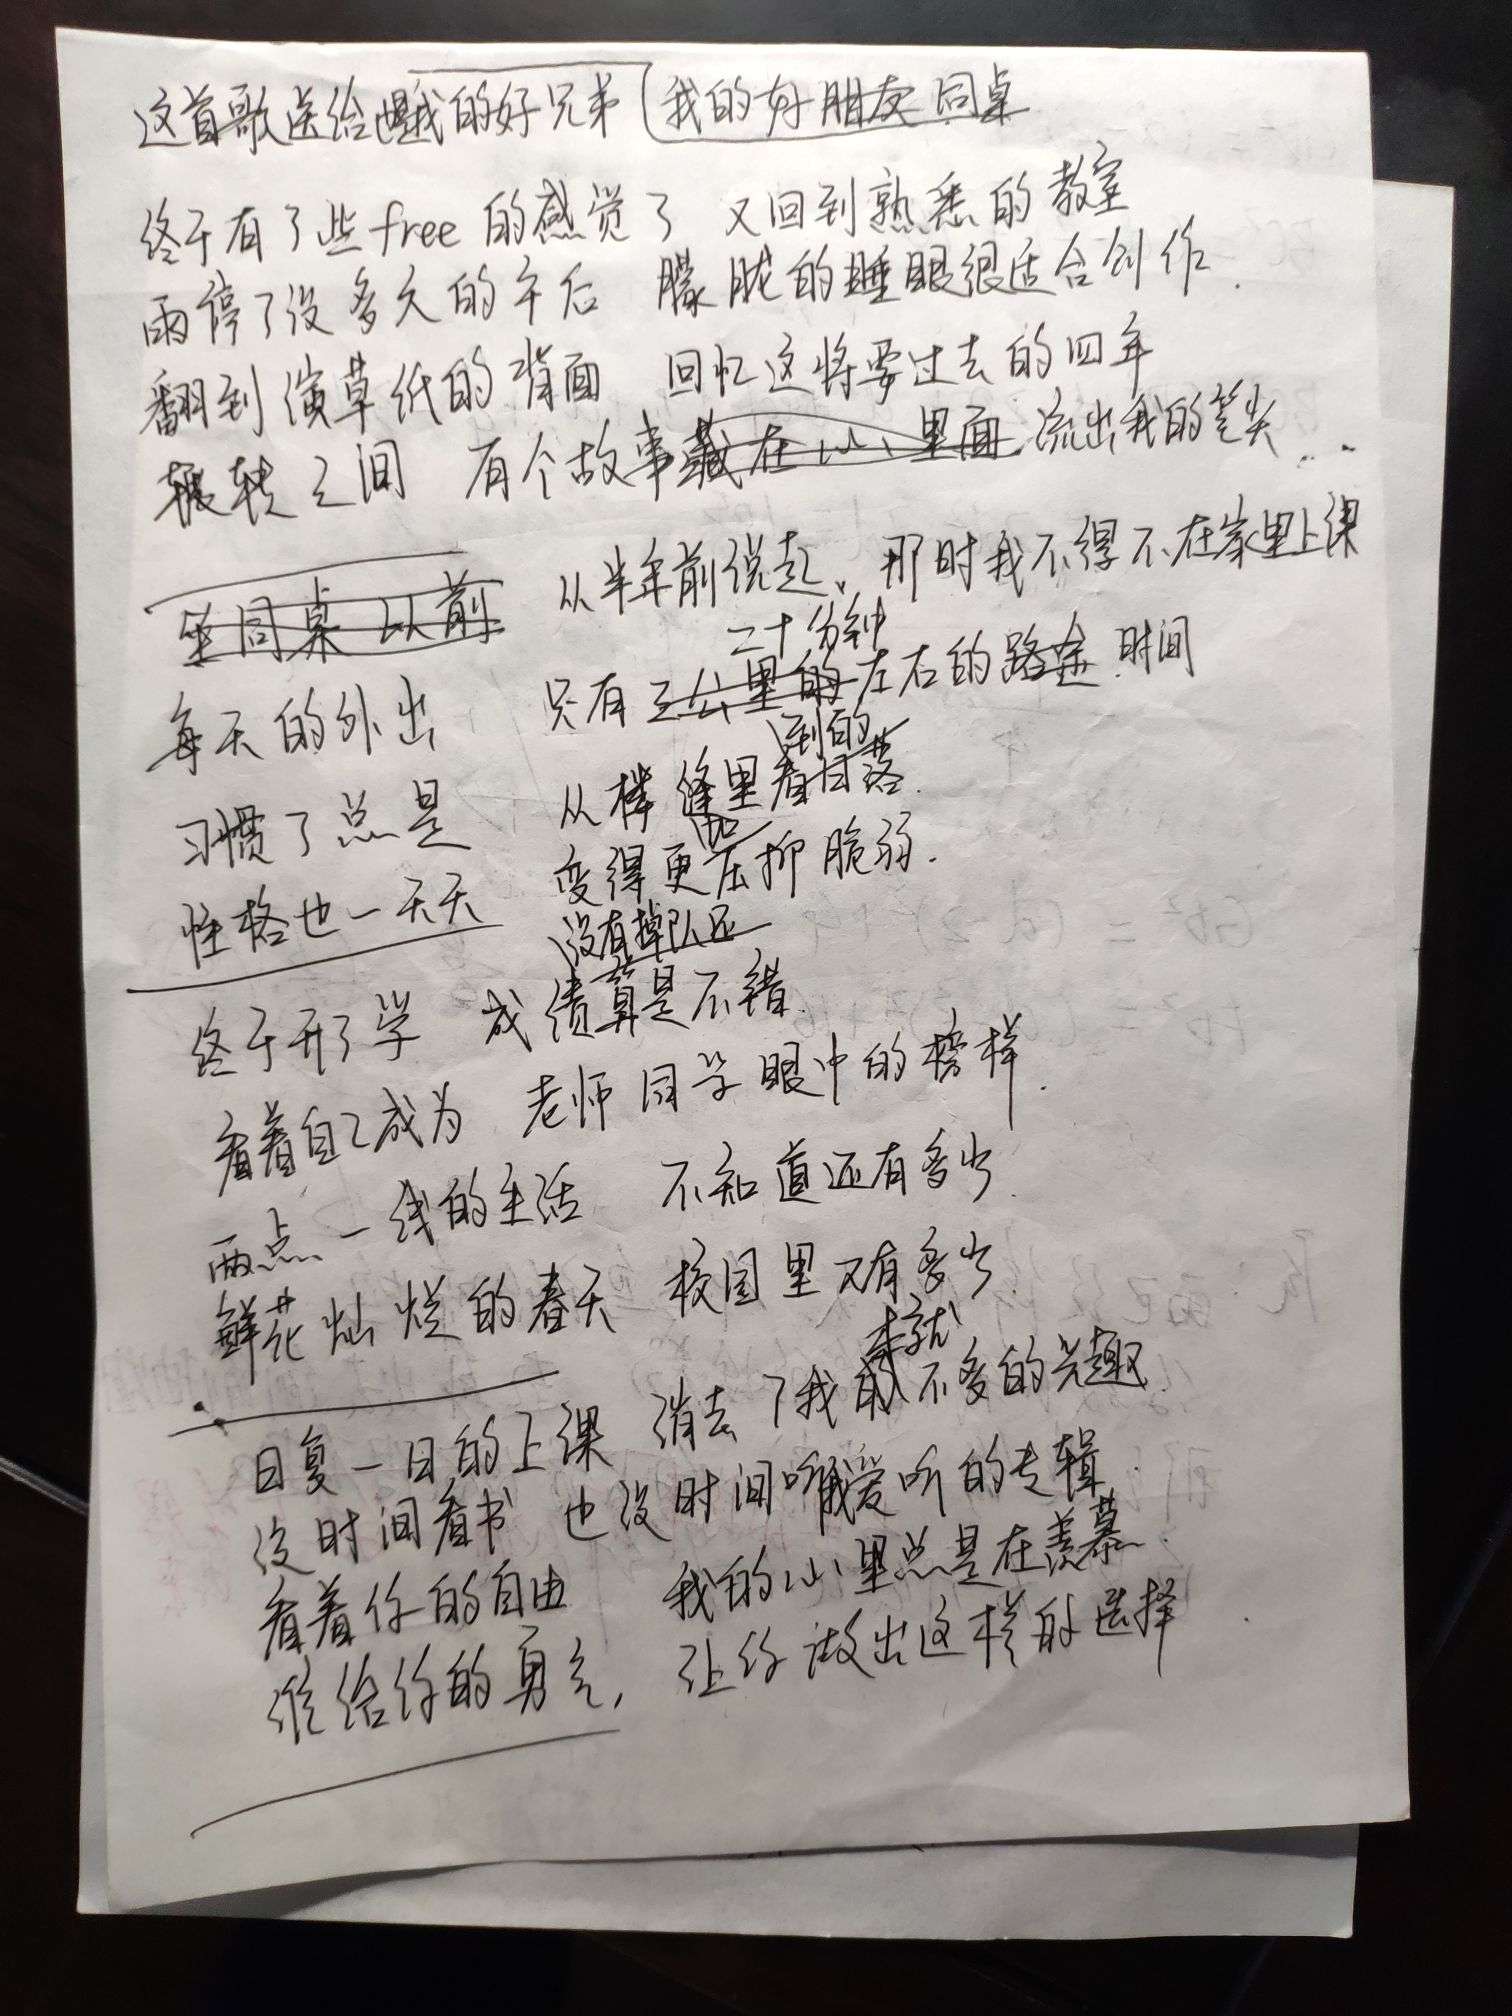 这首歌送给我的好兄弟 我的好朋友 同桌
终于有了些free的感觉了 又回到熟悉的教室
雨停了没多久的午后 朦胧的睡眼很适合创作.
翻到演草纸的背面 回忆这将要过去的四年
辗转之间 有个故事藏在心里面 流出我的笔尖...
坐同桌以前 从半年前说起、那时我不得不在家里上课
二十分钟
每天的外出 只有三公里的左右的路途 时间
到的
习惯了总是 从楼缝里看日落.
加
性格也一天天 变得更压抑脆弱.
没有掉队还
终于开了学 成绩算是不错.
看着自己成为 老师同学眼中的榜样.
两点一线的生活 不知道还有多少.
鲜花灿烂的春天 校园里又有多少
本就
日复一日的上课 消去了我的不多的兴趣.
没时间看书 也没时间听我爱听的专辑.
看着你的自由 我的心里总是在羡慕.
谁给你的勇气, 让你做出这样的选择